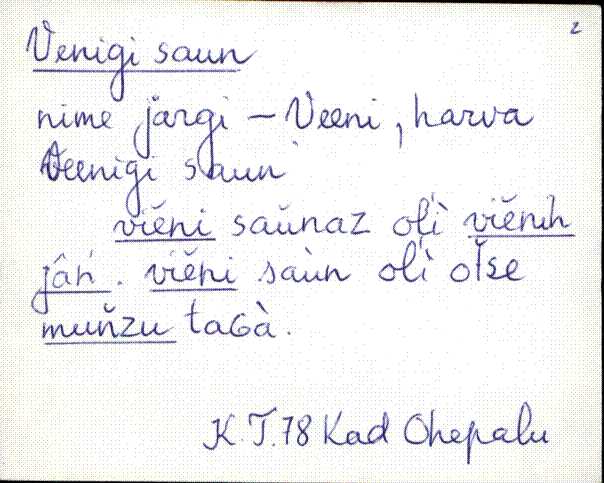 2
Venigi saun
nime järgi – Veeni, harva
Veenigi saun
vièni saŭnaz oľì viènih
jâń. vièni saùn oľì oťse
muňzu taGà.
K.T.78 Kad Ohepalu